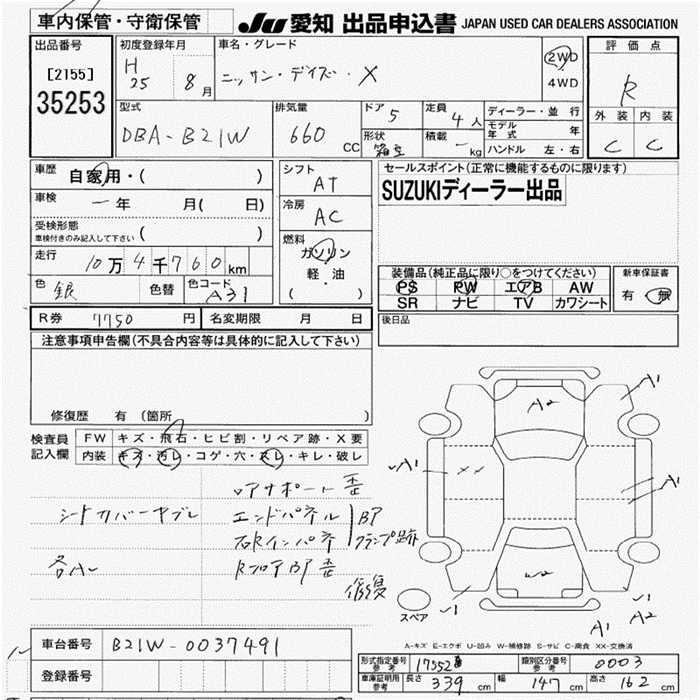 車内保管・守衛保管
JU 愛知 出品申込書 JAPAN USED CAR DEALERS ASSOCIATION
出品番号
[2155]
35253
初度登録年月
H
25 8 月
車名・グレード
ニッサン・デイズ・X
2WD
4WD
評価点
R
外装 内装
C C
型式
DBA-B21W
排気量
660 CC
ドア 5
定員 4人
形状 箱型
積載 - kg
ディーラー・並行
モデル年式 年
ハンドル 左・右
車歴 自家用・( )
車検 一年 月( 日)
受検形態
車検付きのみ記入して下さい ( )
走行 10万4千760km
色 銀 色替 色コード A31
シフト
AT
冷房
AC
燃料
ガソリン
軽・油
( )
セールスポイント(正常に機能するものに限ります)
SUZUKIディーラー出品
装備品(純正品に限り○をつけてください)
PS PW エアB AW
SR ナビ TV カワシート
新車保証書
有・無
R券 7750 円 名変期限 月 日
後日品
注意事項申告欄(不具合内容等は具体的に記入して下さい)
修復歴 有(箇所 )
検査員
記入欄
FW キズ・飛石・ヒビ割・リペア跡・X要
内装 キズ・汚レ・コゲ・穴・スレ・キレ・破レ
シートカバーヤブレ
各AU
コアサポート歪
エンドパネル
右Rインパネ
BP
クランプ跡
Rフロア BP 歪
修復
A2
A1
A1
A1
××
W2
A1
A2
スペア
A-キズ E-エクボ U-凹み W-補修跡 S-サビ C-腐食 XX-交換済
車台番号 B21W-0037491
登録番号
形式指定番号 参考 17552
類別区分番号 参考 0003
車庫証明用 参考 長さ 339 cm 幅 147 cm 高さ 162 cm